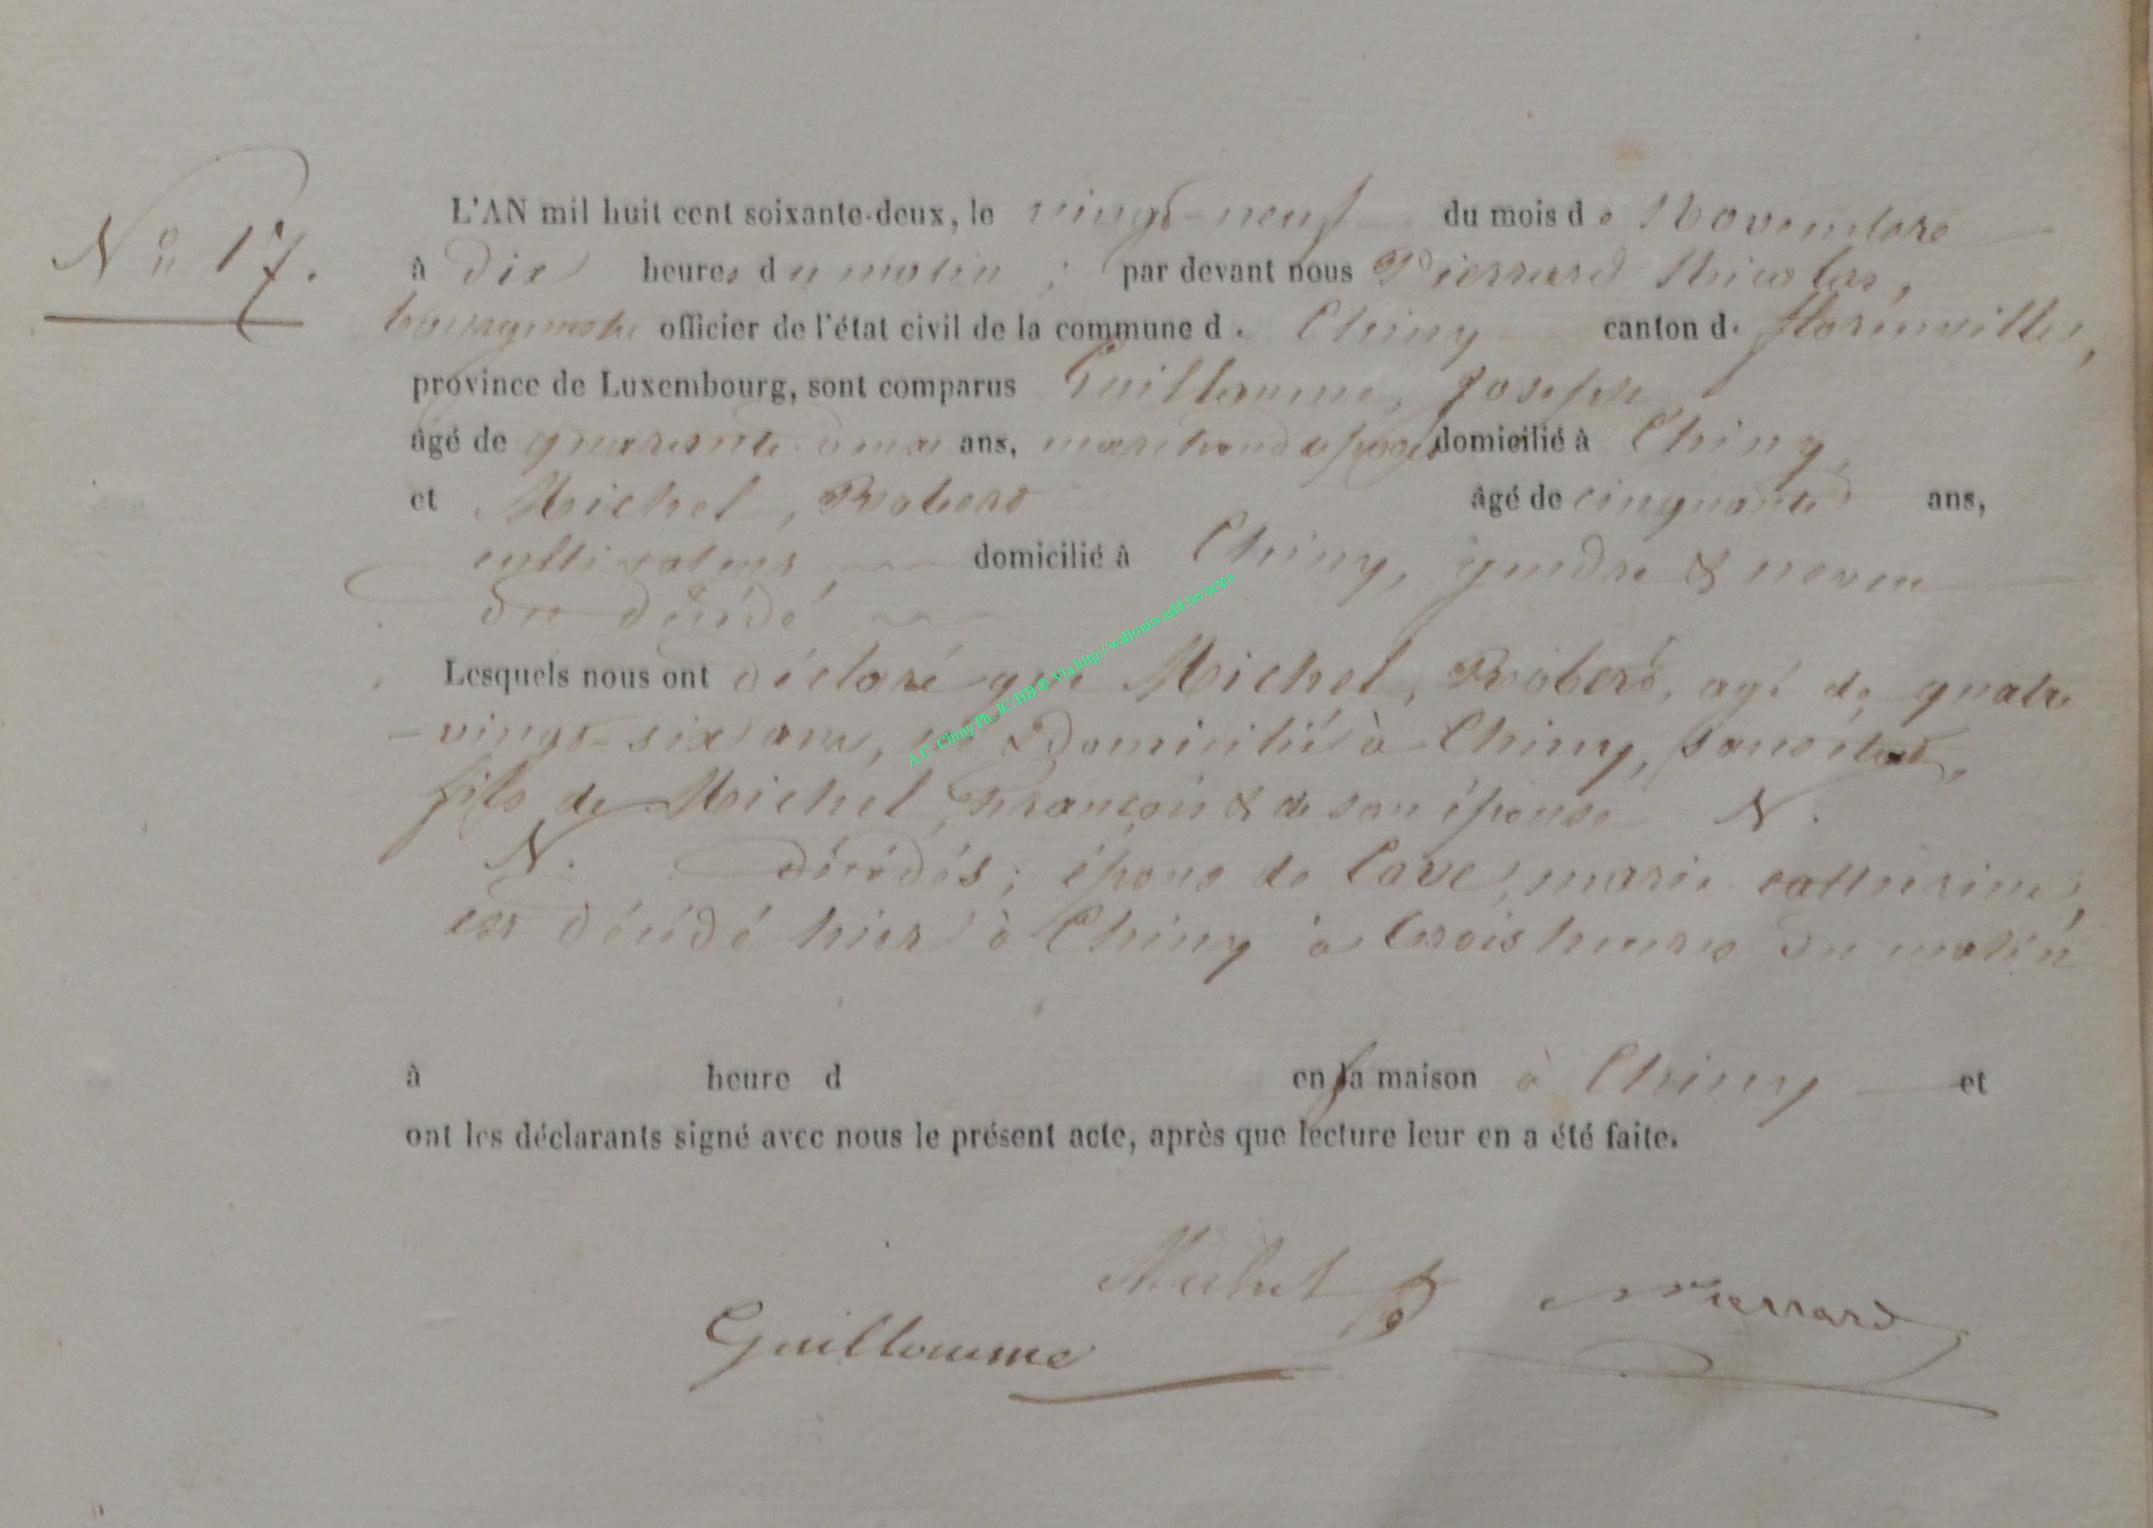 N° 17.
L'AN mil huit cent soixante-deux, le vingt-neuf du mois de Novembre
à dix heures du matin ; par devant nous Pierrard Nicolas,
bourgmestre officier de l'état civil de la commune de Chiny canton de florenville,
province de Luxembourg, sont comparus Guillaume, Joseph
âgé de quarante onze ans, marchand domicilié à Chiny,
et Michel, Robert âgé de cinquante ans,
cultivateur, domicilié à Chiny, gendre & neveu
du décédé
Lesquels nous ont déclaré que Michel, Robert, agé de quatre
-vingt-six ans, Domicilié à Chiny, sans état,
fils de Michel, François & de son épouse N.
N. décédés; épous de Lave, marie catherine,
est décédé hier à Chiny à trois heures du matin
à heure d en sa maison à Chiny et
ont les déclarants signé avec nous le présent acte, après que lecture leur en a été faite.
Michel R
Guillaume
Pierrard
A.C. Chiny Ph. JC/HB © Via http://wallonia-asbl.be/actes